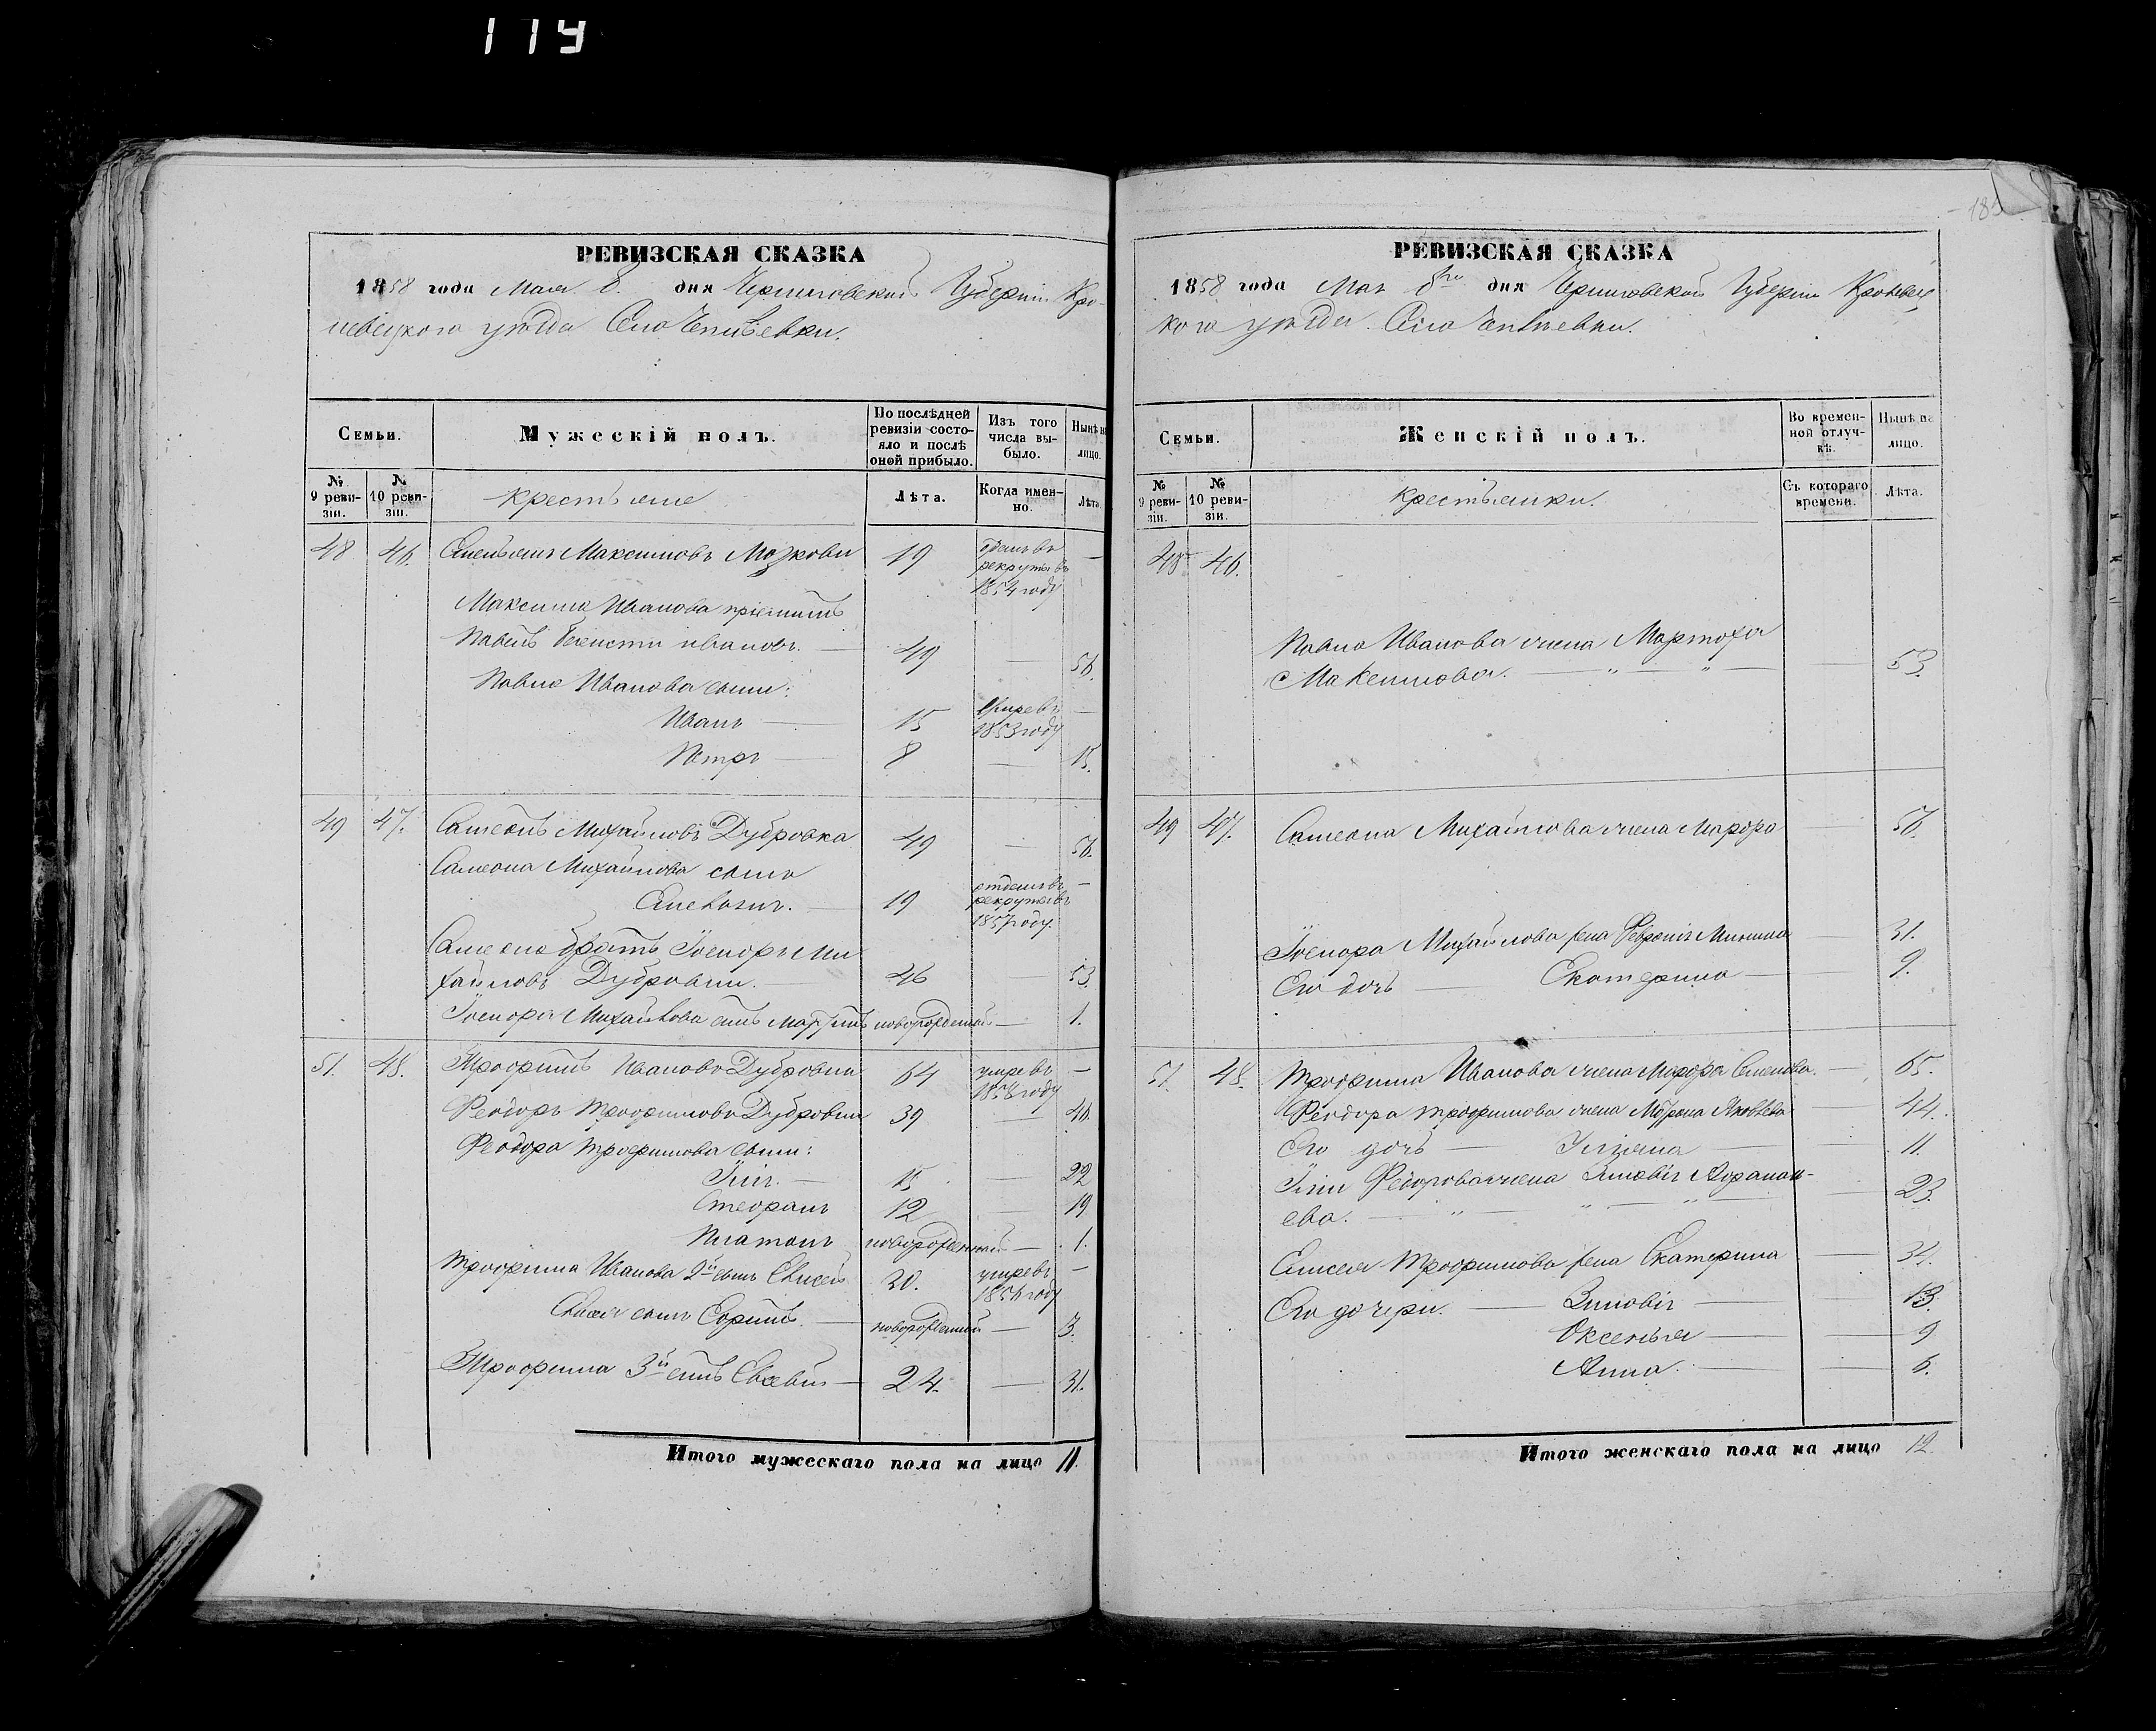 119
РЕВИЗСКАЯ СКАЗКА
1858 года Мая 8. дня Черниговской Губерніи Кро-
левецкого уѣзда Села
Семьи.
Мужескій полъ.
По послѣдней ревизіи состо-яло и послѣ оной прибыло.
Изъ того числа вы-было.
Нынѣ на лицо.
№ 9 реви-зіи.
№ 10 реви-зіи.
Крестьяне
Лѣта.
Когда имен-но.
Лѣта
48 46. Емельянъ Максимовъ 19 отданъ въ рекруты въ 1854 году —
Максима Иванова
Павелъ Ивановъ. — 49 — 56.
Павла Иванова сыны:
Иванъ — 15 умре въ 1853 году —
Петръ — 8 — 15.
49 47. Самсонъ Михайловъ Дубровка 49 — 56.
Самсона Михайлова сынъ
19 отданъ въ рекруты въ 1857 году. —
Самсона братъ Ми
хайловъ Дубровка. — 46 — 53.
Михайлова сынъ новорожденный — 1.
51. 48. Трофимъ Ивановъ Дубровка 64 умре въ 1858 году —
Феодоръ Трофимовъ Дубровка 39 — 46.
Феодора Трофимова сыны:
15 — 22
Стефанъ 12 — 19
Платонъ новорожденный — 1.
Трофима Иванова 2й сынъ Елисей 30. умре въ 1856 году —
Елисея сынъ Ефимъ. — новорожденный — 3.
Трофима 3й сынъ — 24. — 31.
Итого мужескаго пола на лицо 11.
РЕВИЗСКАЯ СКАЗКА
1858 года Мая 8го дня Черниговской Губерніи Кролевец
кого уѣзда. Села
Семьи.
Женскій полъ.
Во времен-ной отлуч-кѣ.
Нынѣ на лицо.
№ 9 реви-зіи.
№ 10 реви-зіи.
Крестьянки.
Съ котораго времени.
Лѣта.
48 46.
Павла Иванова жена Марфа
Максимова. — " — " — — 53.
49 47. Самсона Михайлова жена — 56.
Михайлова жена Февронія — 31.
Его дочь — Екатерина — 9.
51. 48. Трофима Иванова жена — 65.
Феодора Трофимова жена Яковлева — 44.
Его дочь — Ульяна — 11.
Федорова жена Зиновія Афанась-
ева. — " — " — " — 23.
Елисея Трофимова жена Екатерина — 34.
Его дочери. — Зиновія — 13.
Оксенья — 9
Анна. — 6.
Итого женскаго пола на лицо 12.